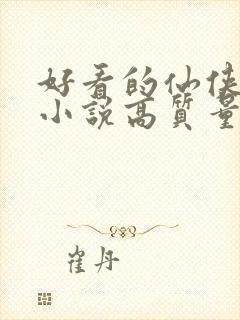 好看的仙侠
小説高質量
崔丹